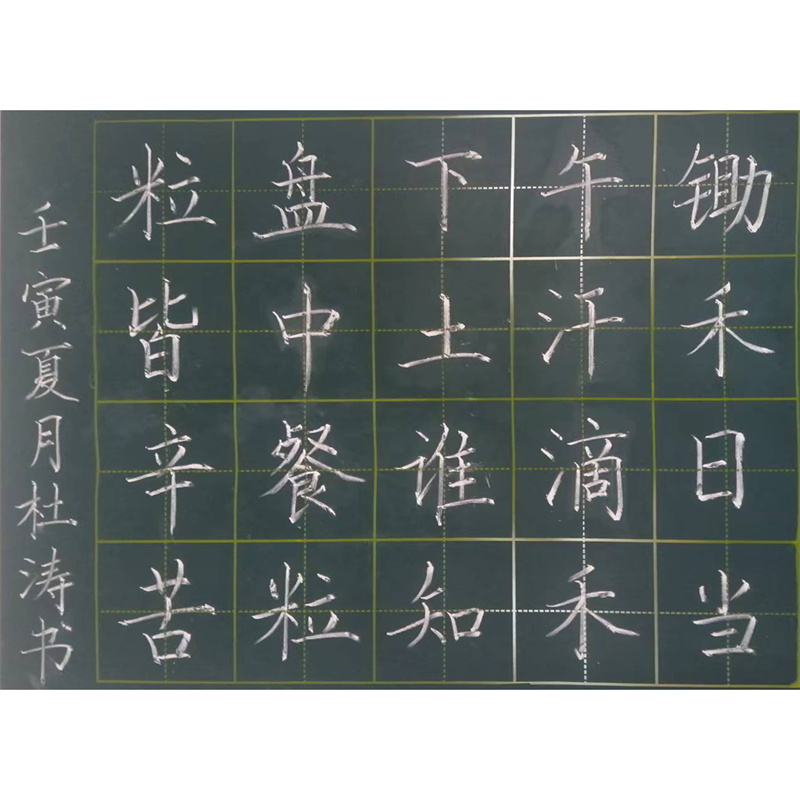 锄禾日当
午汗滴禾
下土谁知
盘中餐粒
粒皆辛苦
壬寅夏月杜涛书